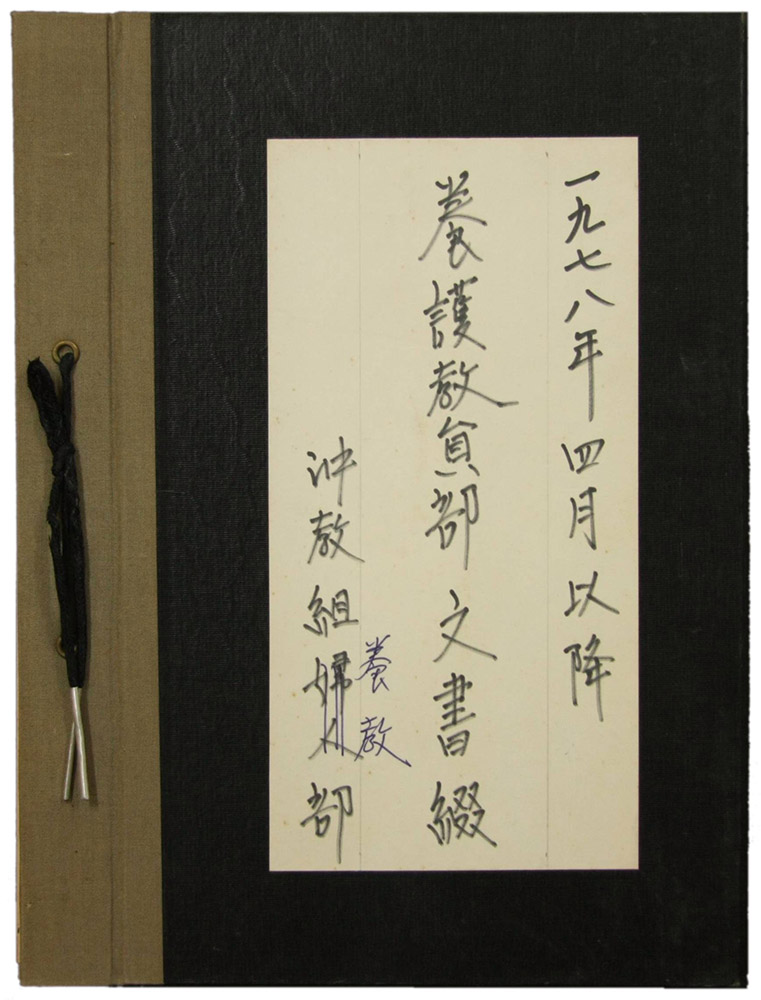 一九七八年四月以降
養護教員部 文書綴
沖教組婦人部
養教